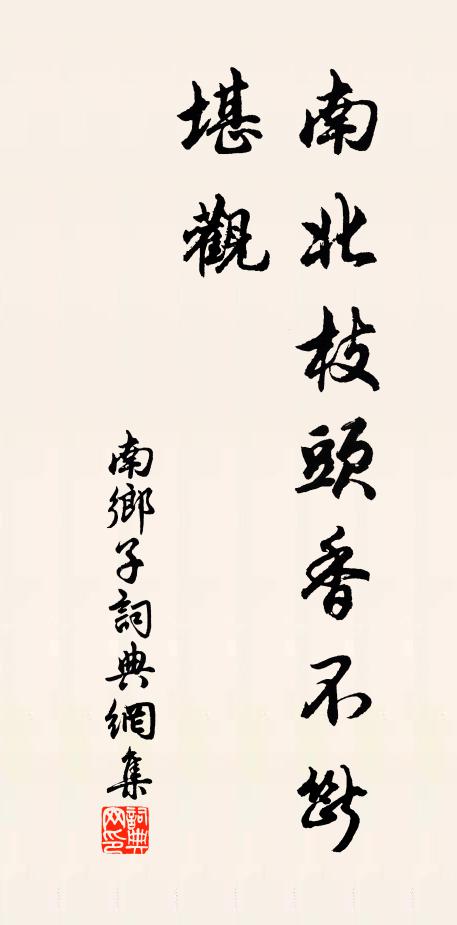 南北枝頭香不斷
堪觀
南鄉子詞典網集
詞典网印